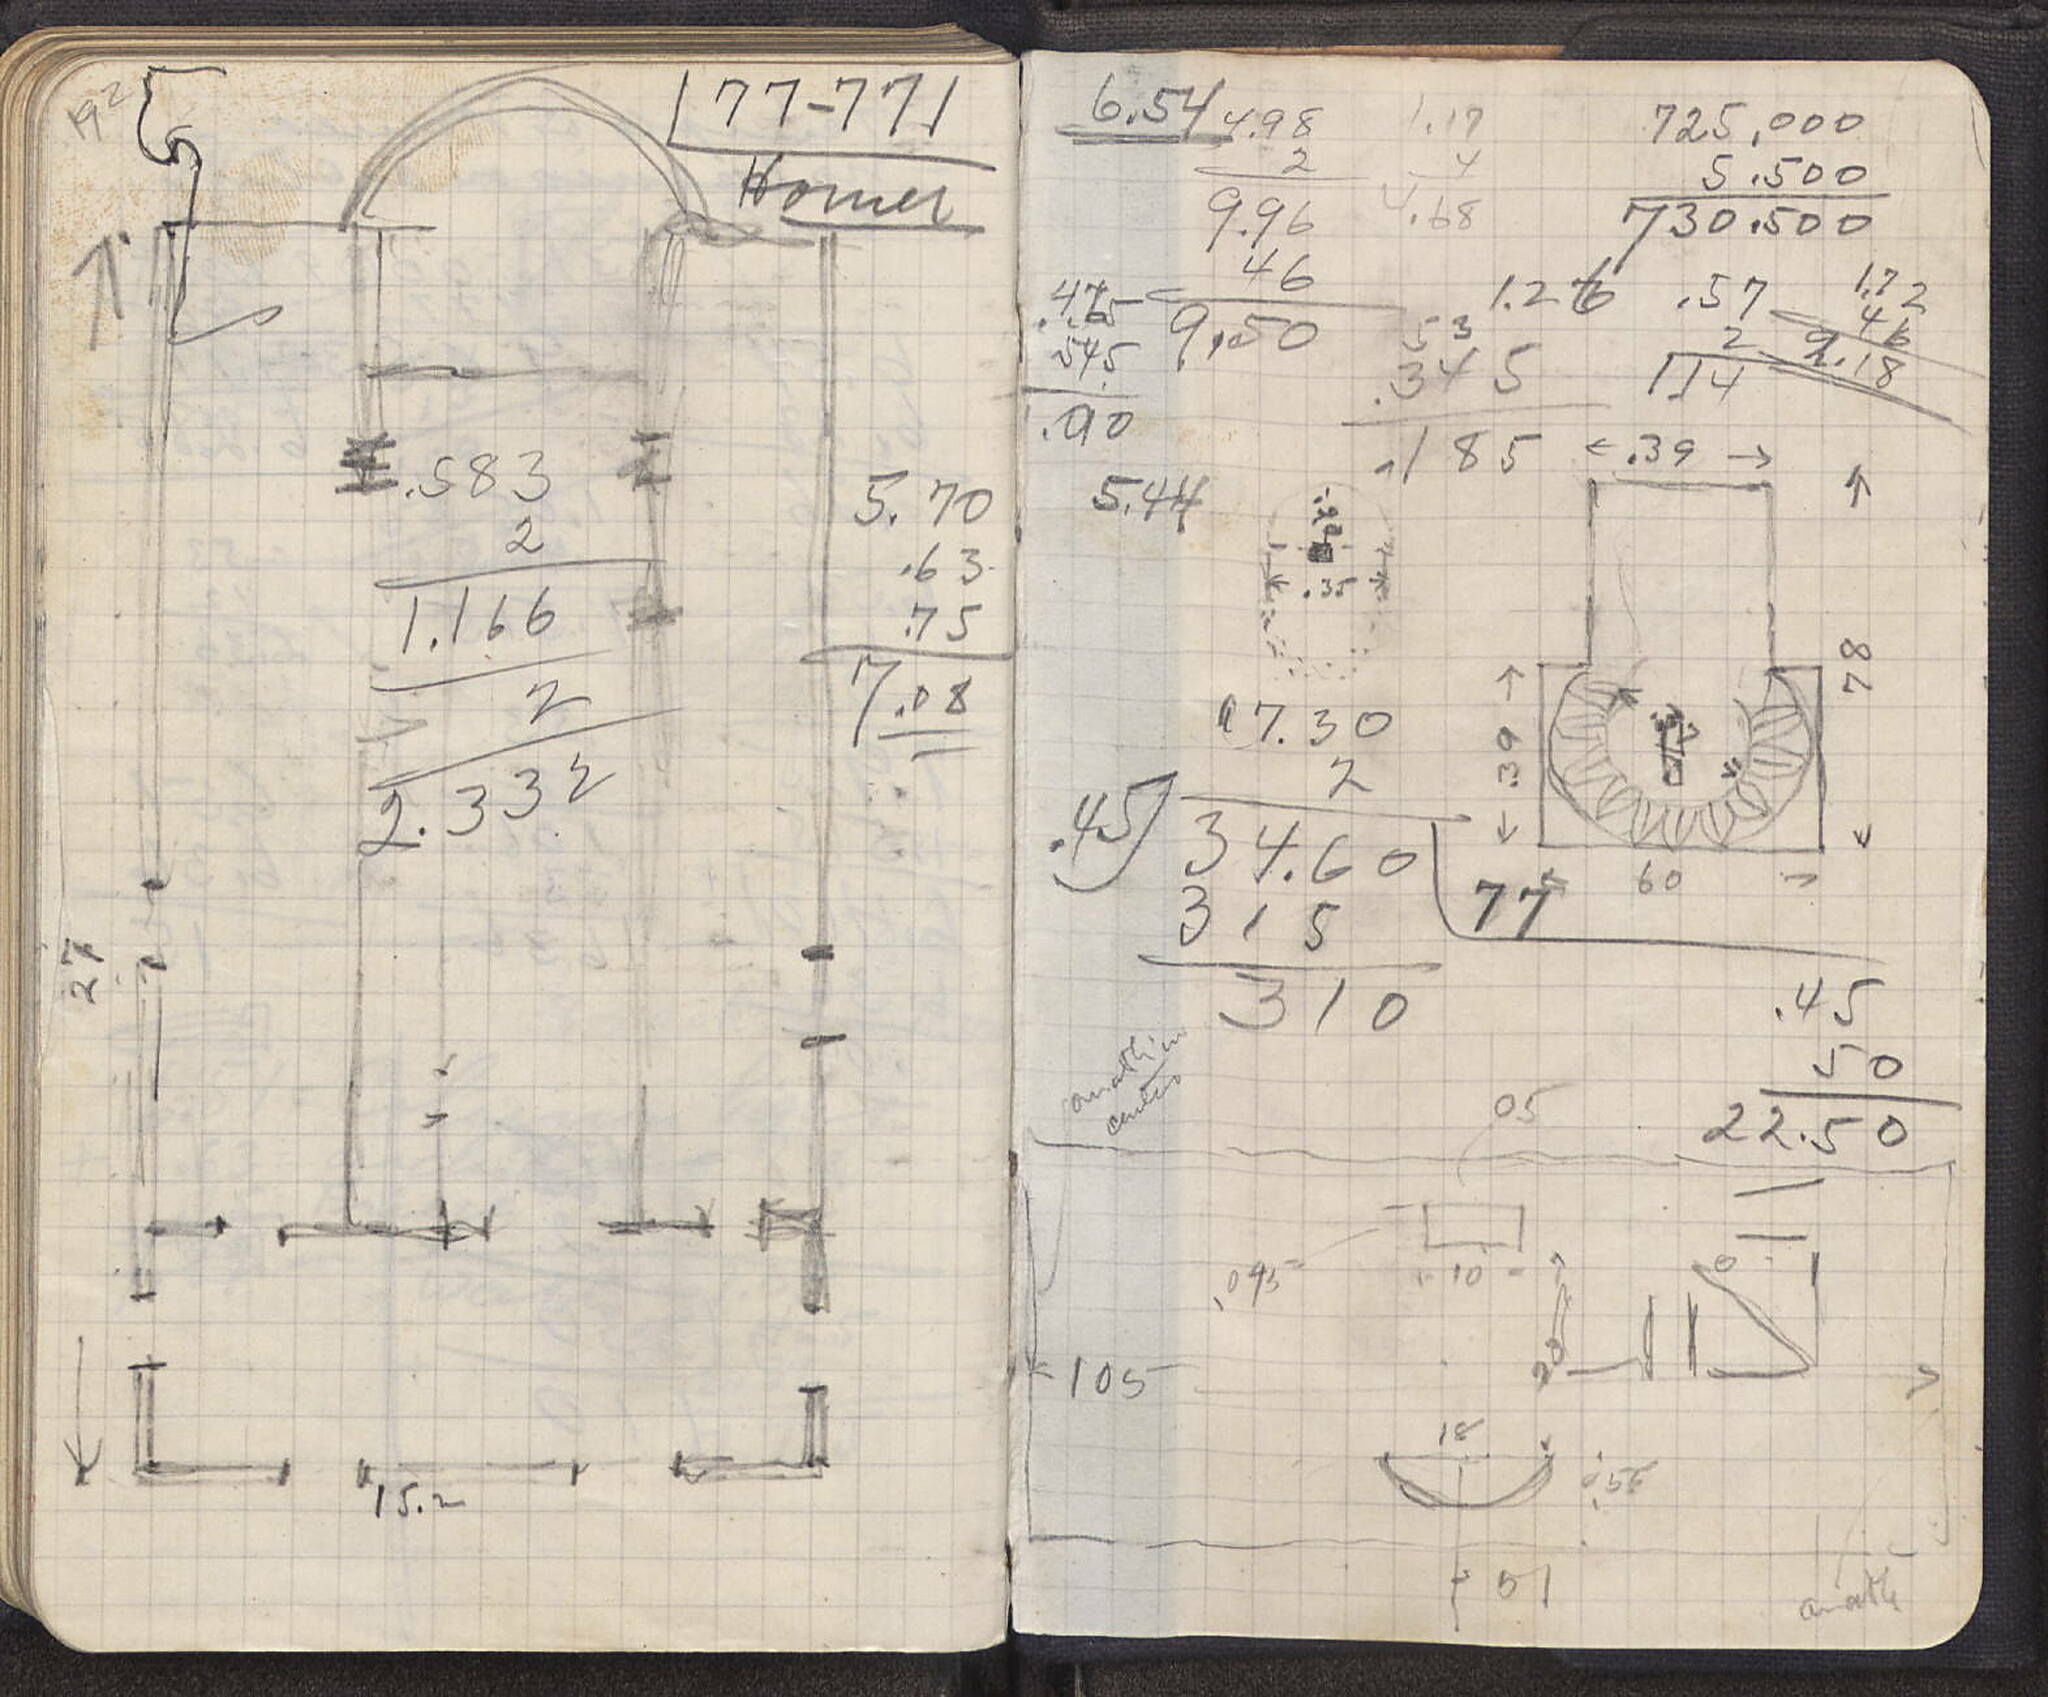 192
177-771
Homer
.583
2
1.166
2
2.332
5.70
.63
.75
7.08
27
15.2
6.54
4.98
2
9.96
46
9.50
1.17
4
4.68
725,000
5.500
730.500
.545
.90
1.26
53
.345
.185
.57
2
114
1.72
46
2.18
.39
5.44
.35
78
.39
60
17.30
2
.45
34.60
77
315
310
.45
50
22.50
anath in
center
05
10
.095
20
105
18
51
anath